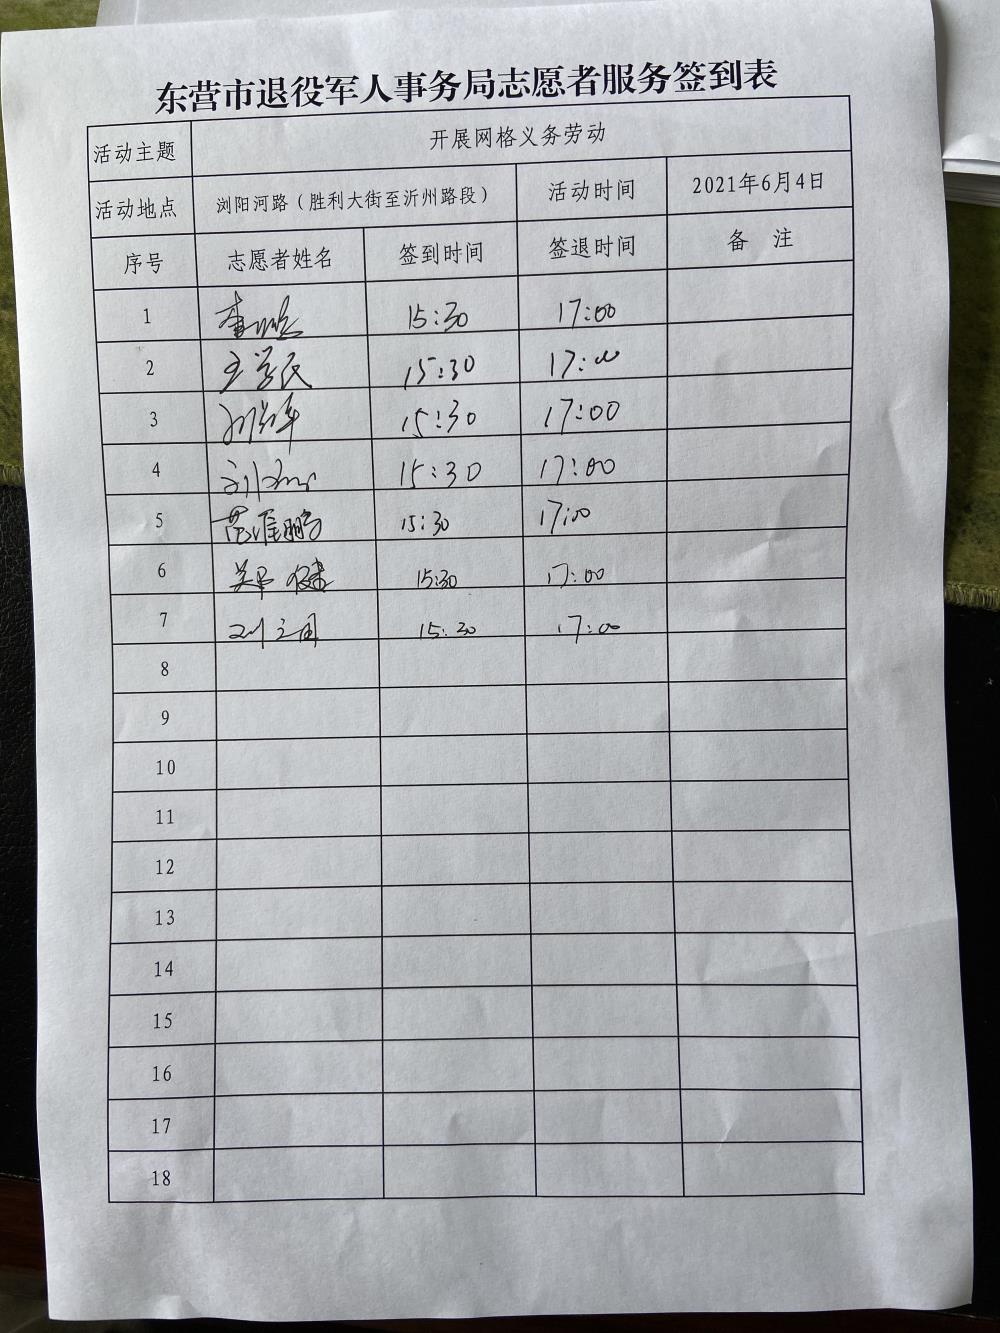 东营市退役军人事务局志愿者服务签到表
活动主题 开展网格义务劳动
活动地点 浏阳河路（胜利大街至沂州路段） 活动时间 2021年6月4日
序号 志愿者姓名 签到时间 签退时间 备 注
1 15:30 17:00
2 王学民 15:30 17:00
3 15:30 17:00
4 15:30 17:00
5 15:30 17:00
6 15:30 17:00
7 15:30 17:00
8
9
10
11
12
13
14
15
16
17
18